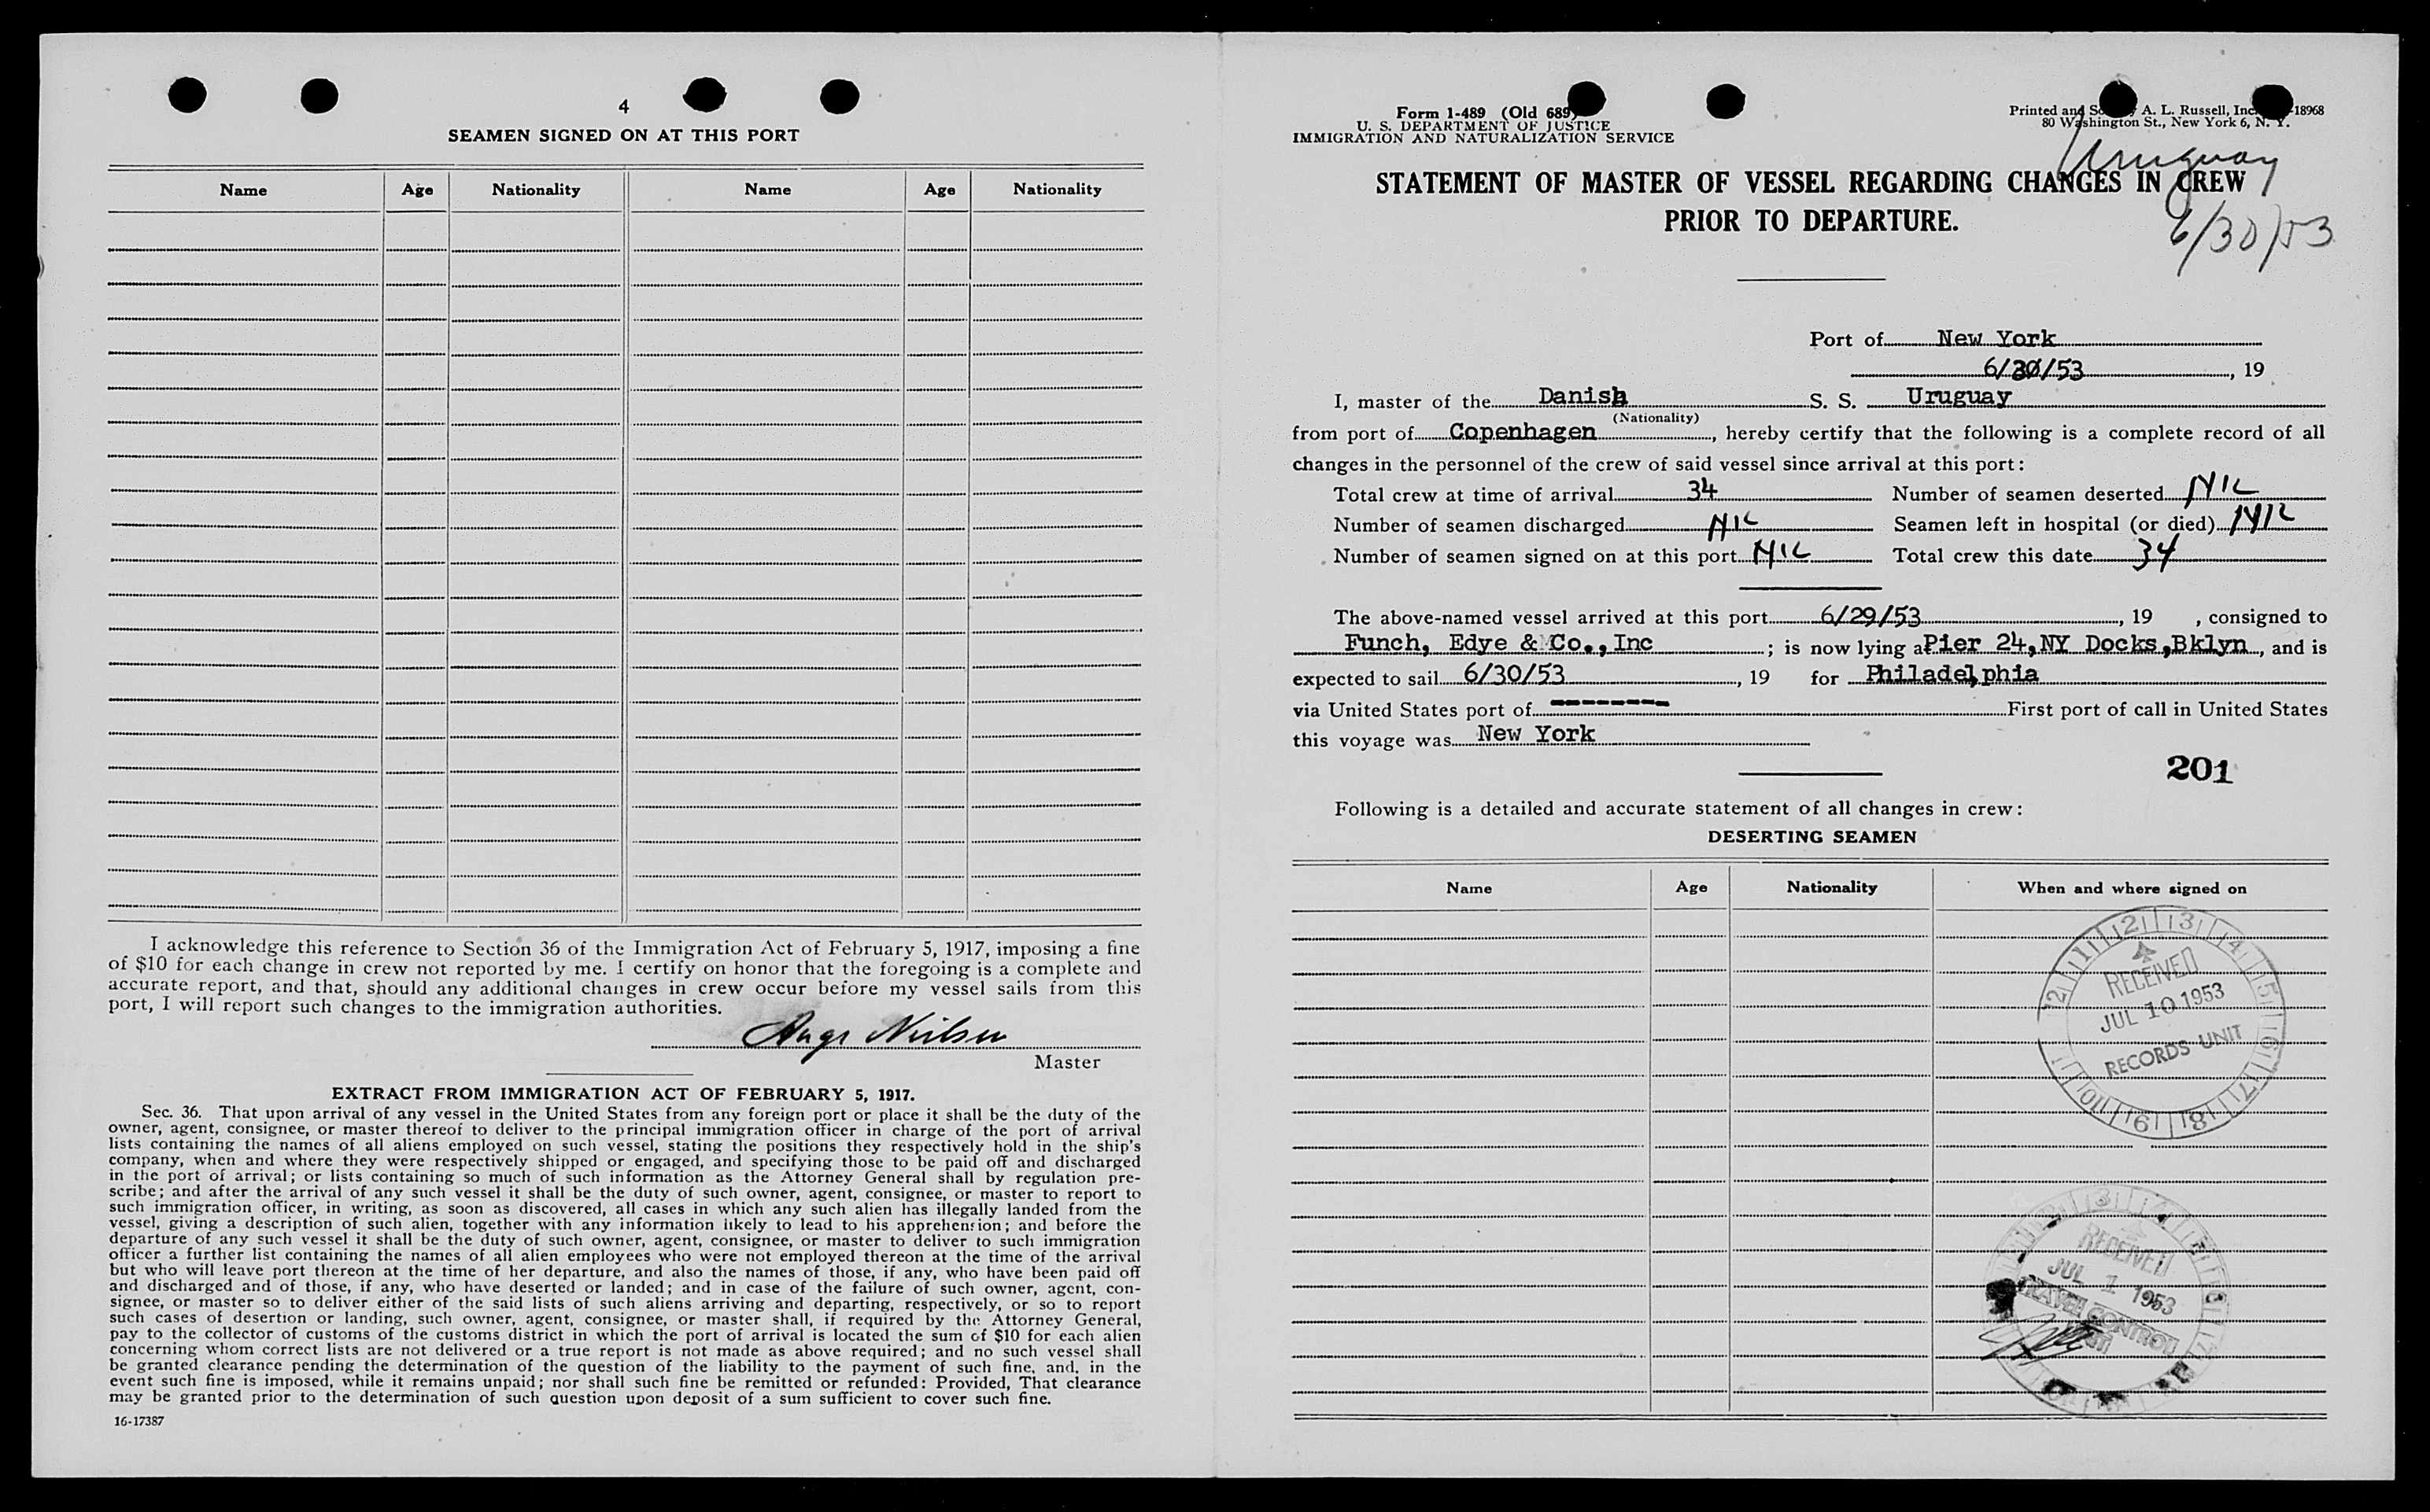 4
SEAMEN SIGNED ON AT THIS PORT
Name Age Nationality Name Age Nationality
I acknowledge this reference to Section 36 of the Immigration Act of February 5, 1917, imposing a fine
of $10 for each change in crew not reported by me. I certify on honor that the foregoing is a complete and
accurate report, and that, should any additional changes in crew occur before my vessel sails from this
port, I will report such changes to the immigration authorities.
Aage Nielsen
Master
EXTRACT FROM IMMIGRATION ACT OF FEBRUARY 5, 1917.
Sec. 36. That upon arrival of any vessel in the United States from any foreign port or place it shall be the duty of the
owner, agent, consignee, or master thereof to deliver to the principal immigration officer in charge of the port of arrival
lists containing the names of all aliens employed on such vessel, stating the positions they respectively hold in the ship's
company, when and where they were respectively shipped or engaged, and specifying those to be paid off and discharged
in the port of arrival; or lists containing so much of such information as the Attorney General shall by regulation pre-
scribe; and after the arrival of any such vessel it shall be the duty of such owner, agent, consignee, or master to report to
such immigration officer, in writing, as soon as discovered, all cases in which any such alien has illegally landed from the
vessel, giving a description of such alien, together with any information likely to lead to his apprehension; and before the
departure of any such vessel it shall be the duty of such owner, agent, consignee, or master to deliver to such immigration
officer a further list containing the names of all alien employees who were not employed thereon at the time of the arrival
but who will leave port thereon at the time of her departure, and also the names of those, if any, who have been paid off
and discharged and of those, if any, who have deserted or landed; and in case of the failure of such owner, agent, con-
signee, or master so to deliver either of the said lists of such aliens arriving and departing, respectively, or so to report
such cases of desertion or landing, such owner, agent, consignee, or master shall, if required by the Attorney General,
pay to the collector of customs of the customs district in which the port of arrival is located the sum of $10 for each alien
concerning whom correct lists are not delivered or a true report is not made as above required; and no such vessel shall
be granted clearance pending the determination of the question of the liability to the payment of such fine, and, in the
event such fine is imposed, while it remains unpaid; nor shall such fine be remitted or refunded: Provided, That clearance
may be granted prior to the determination of such question upon deposit of a sum sufficient to cover such fine.
16-17387
Form 1-489 (Old 689)
U. S. DEPARTMENT OF JUSTICE
IMMIGRATION AND NATURALIZATION SERVICE
Printed and A. L. Russell, Inc. 18968
80 Washington St., New York 6, N. Y.
Uruguay
STATEMENT OF MASTER OF VESSEL REGARDING CHANGES IN CREW
PRIOR TO DEPARTURE.
6/30/53
Port of New York
6/30/53, 19
I, master of the Danish S. S. Uruguay
(Nationality)
from port of Copenhagen, hereby certify that the following is a complete record of all
changes in the personnel of the crew of said vessel since arrival at this port:
Total crew at time of arrival 34 Number of seamen deserted NIL
Number of seamen discharged NIL Seamen left in hospital (or died) NIL
Number of seamen signed on at this port NIL Total crew this date 34
The above-named vessel arrived at this port 6/29/53, 19 , consigned to
Funch, Edye & Co., Inc ; is now lying a Pier 24, NY Docks, Bklyn, and is
expected to sail 6/30/53, 19 for Philadelphia
via United States port of --------- First port of call in United States
this voyage was New York
201
Following is a detailed and accurate statement of all changes in crew:
DESERTING SEAMEN
Name Age Nationality When and where signed on
12 1 2 3 4 5 6 7 8 9 10 11
RECEIVED
JUL 10 1953
RECORDS UNIT
RECEIVED
JUL 1 1953
CONTROL